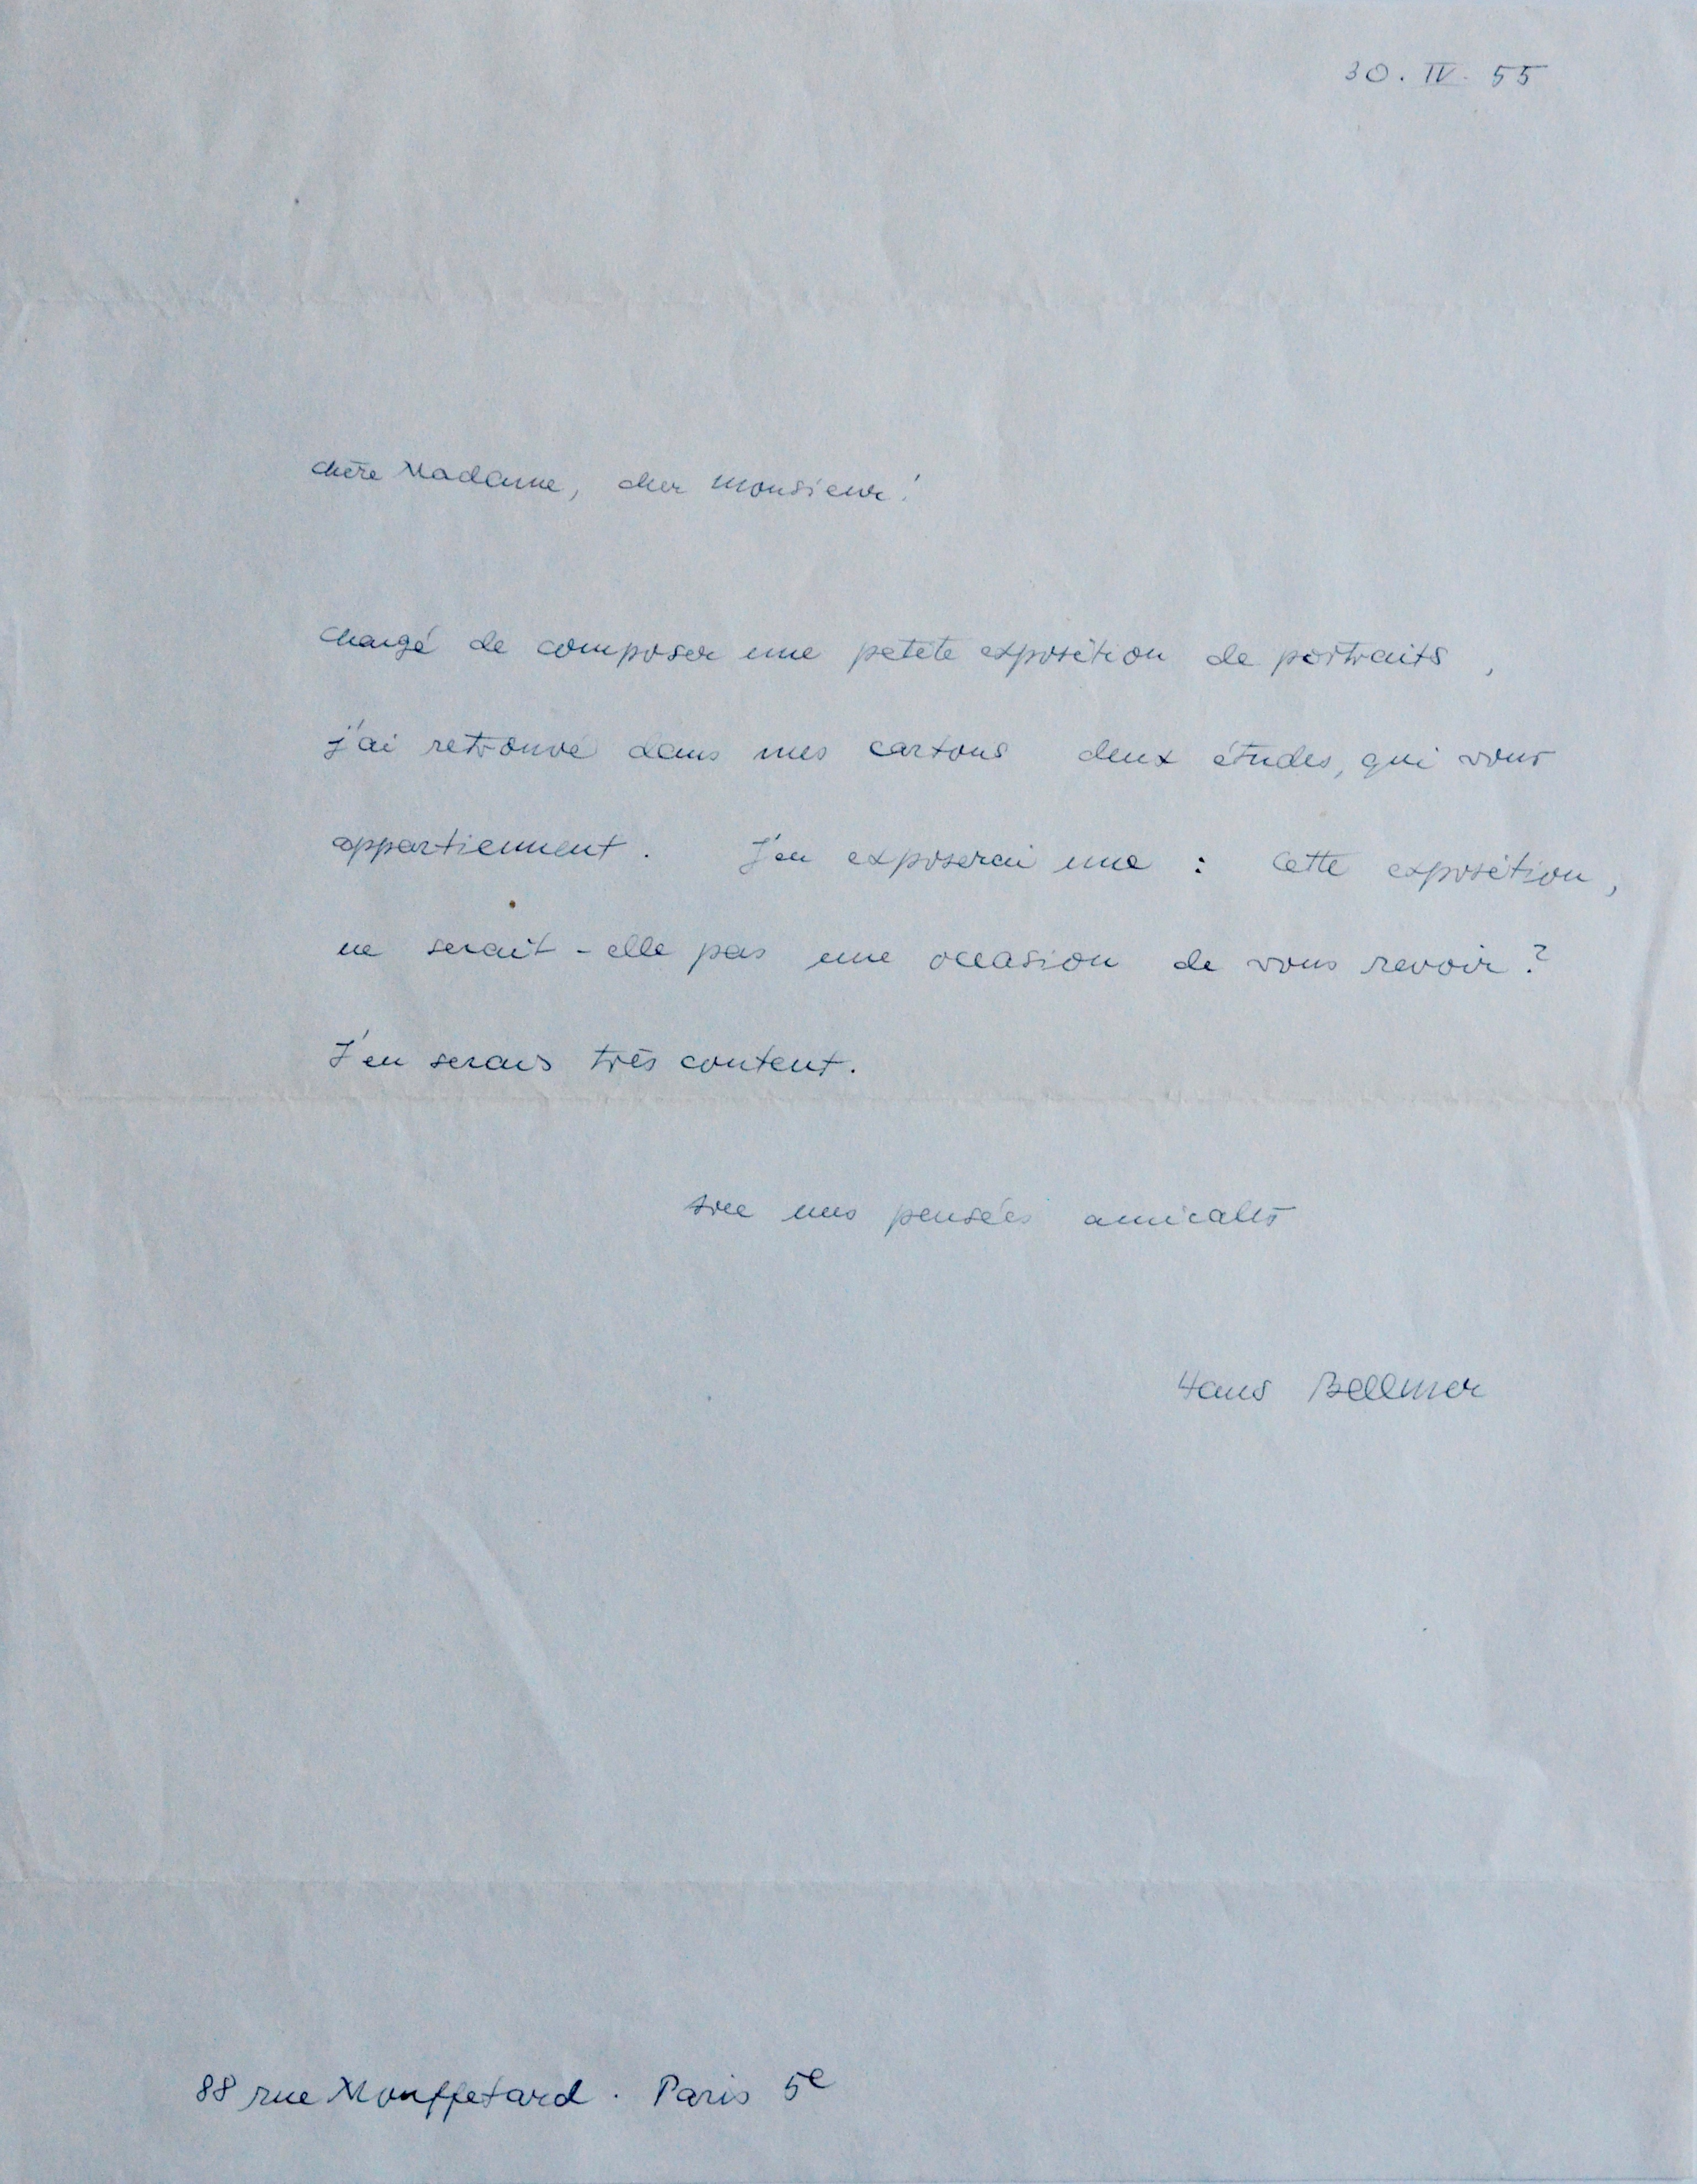 30. IV. 55
chère Madame, cher Monsieur!
chargé de composer une petite exposition de portraits,
j'ai retrouvé dans mes cartons deux études, qui vous
appartiennent. J'en exposerai une : Cette exposition,
ne serait-elle pas une occasion de vous revoir?
J'en serais très content.
avec mes pensées amicales
Hans Bellmer
88 rue Mouffetard. Paris 5e